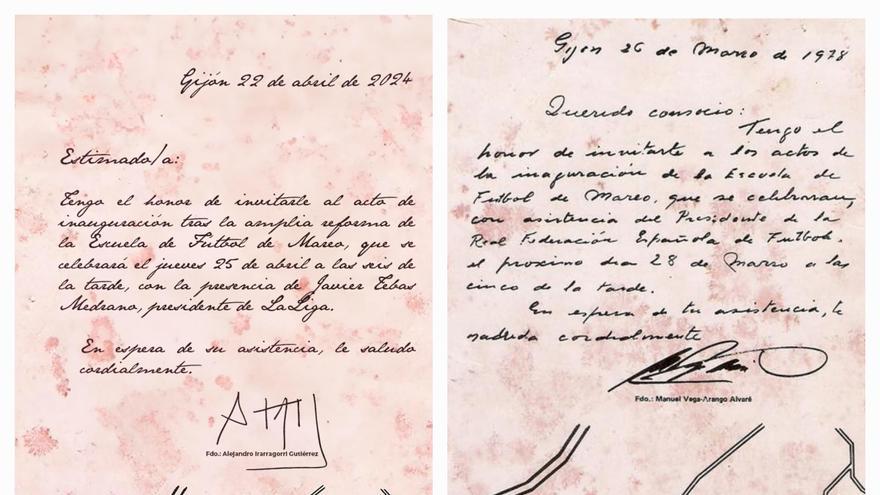 Gijón 22 de abril de 2024
Estimado/a:
Tengo el honor de invitarle al acto de
inauguración tras la amplia reforma de
la Escuela de Fútbol de Mareo, que se
celebrará el jueves 25 de abril a las seis de
la tarde, con la presencia de Javier Tebas
Medrano, presidente de LaLiga.
En espera de su asistencia, le saludo
cordialmente.
Fdo.: Alejandro Irarragorri Gutiérrez
Gijon 26 de Marzo de 1978
Querido consocio:
Tengo el
honor de invitarte a los actos de
la inaguración de la Escuela de
Futbol de Mareo, que se celebraran,
con asistencia del Presidente de la
Real Federación Española de Futbol.
el proximo dia 28 de Marzo a las
cinco de la tarde.
En espera de tu asistencia, te
saluda cordialmente
Fdo.: Manuel Vega-Arango Alvaré